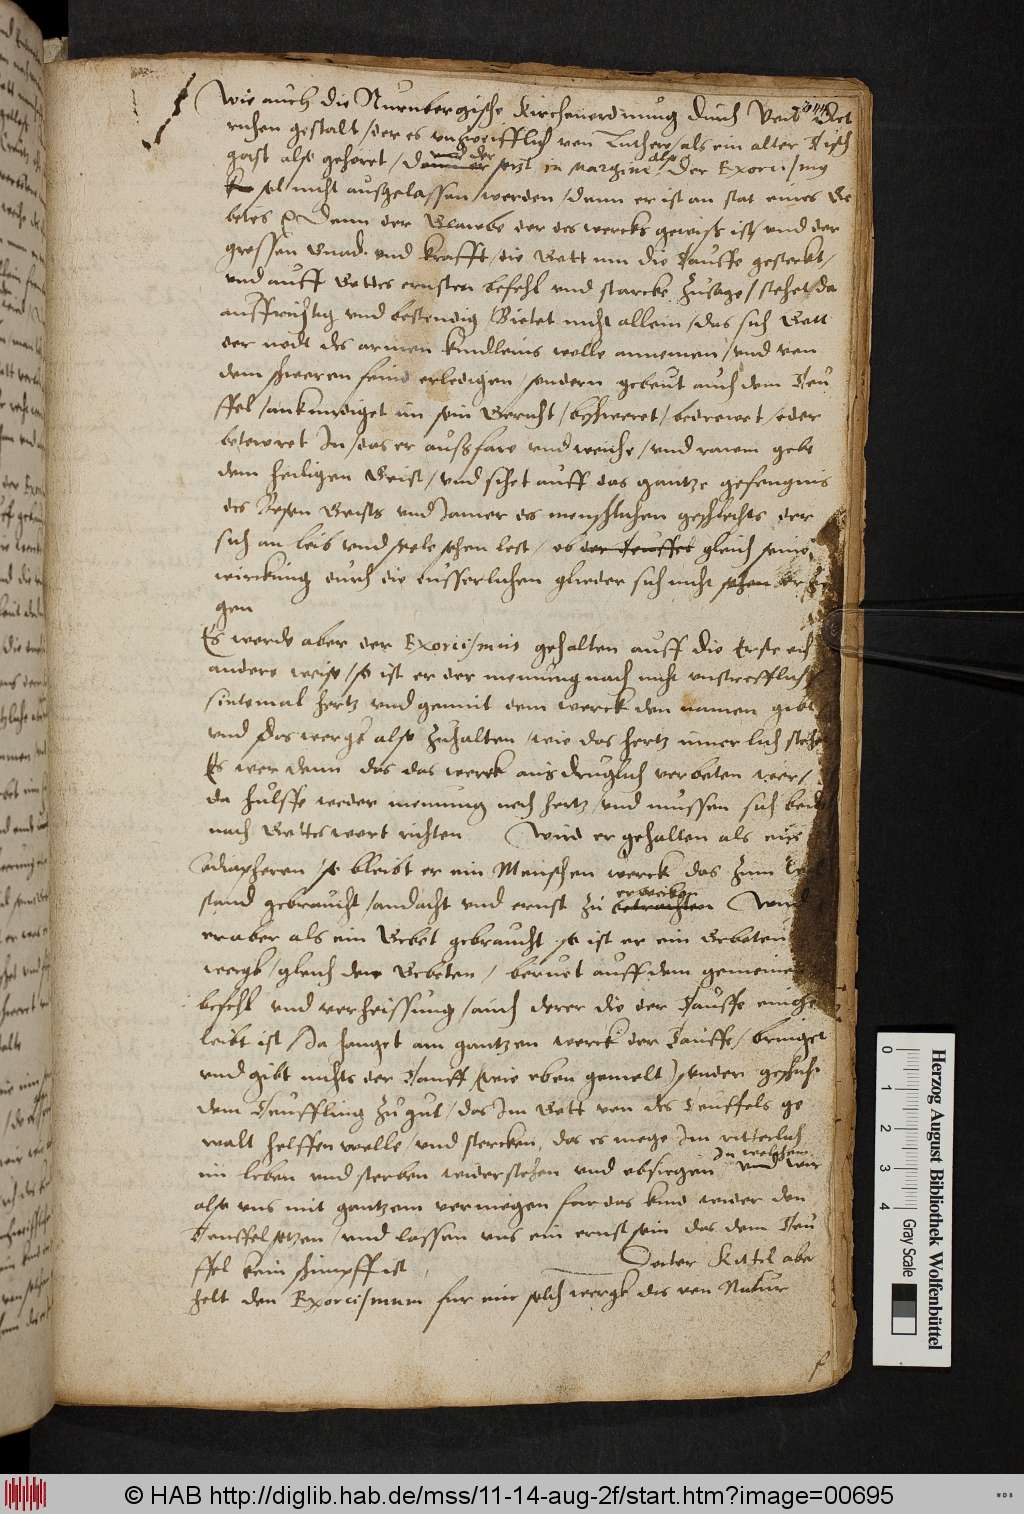 344
Wie auch die Nurnbergische Kirchenordnung durch Veit Diet
richen gestalt / der es unzweifflich von Luthero / als ein alter Tisch
gast also gehöret / und der setzt in Margine also Der Exorcismus
sol nicht aussgelassen werden / denn er ist an stat eines Ge
betes Denn der Glawbe der des wercks gewiss ist und der
grossen Gnad und Krafft / die Gott inn die Tauffe gesteckt /
und auff Gottes ernsten befehl und starcke Zusage / stehet da
auffrichtig und bestendig Bietet nicht allein / das sich Gott
der nodt des armen Kindleins wolle annemen / und von
dem schweren feind erledigen / sondern gebeut auch dem Teu
ffel / ankundiget im sein Gericht / beschweret / bedrewet / oder
betewret In / das er aussfare und weiche / und raum gebe
dem heiligen Geist / und sihet auff das gantze gefengnis
des Bosen Geists und Jamer des menschlichen geschlechts der
sich an leib und seele sehen lest / ob der teuffel gleich seine
wirckung durch die eusserlichen glieder sich nicht sehen
gen
Es werde aber der Exorcismus gehalten auff die Erste
andere weise / so ist er der meinung nach nicht unstrefflich
sintemal hertz und gemut dem werck den namen gibt
und das wergk also zuhalten / wie das hertz innerlich stehet
Es wer denn das das werck ausdruglich verboten wer /
da hulffe weder meinung noch hertz / und mussen sich beide
nach Gottes wort richten Wird er gehalten als ein
Adiaphoron / so bleibt er ein Menschen werck das zum
stand gebraucht / andacht und ernst zu betrachten erwecken Wird
er aber als ein Gebet gebraucht so ist er ein Geboten
wergk / gleich den Gebeten / beruet auff dem gemeinen
befehl und verheissung / auch derer die der Tauffe einge
leibt ist Da hanget am gantzen werck der Tauffe / bringet
und gibt nichts der Tauff (wie oben gemelt) sonder geschicht
dem Teuffling zu gut / das Im Gott von des Teuffels ge
walt helffen wolle / und stercken / das es moge Im ritterlich
im leben und sterben widerstehen und obsiegen In welchem wir
also uns mit gantzem vermogen fur das kind wider den
Teuffel setzen / und lassen uns ein ernst sein das dem Teu
ffel kein schimpff ist Doctor aber
helt den Exorcismum fur eine solch wergk des von Natur
Herzog August Bibliothek Wolfenbüttel
Gray Scale
0 1 2 3 4
© HAB http://diglib.hab.de/mss/11-14-aug-2f/start.htm?image=00695